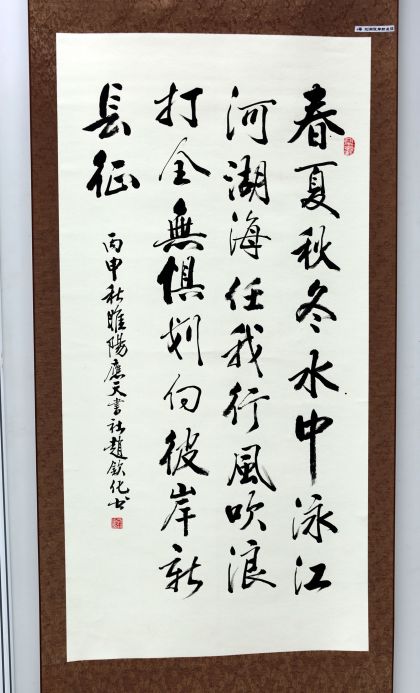 春夏秋冬水中泳江
河湖海任我行風吹浪
打全無惧划向彼岸新
長征
丙申秋睢陽應天書社趙欽化书